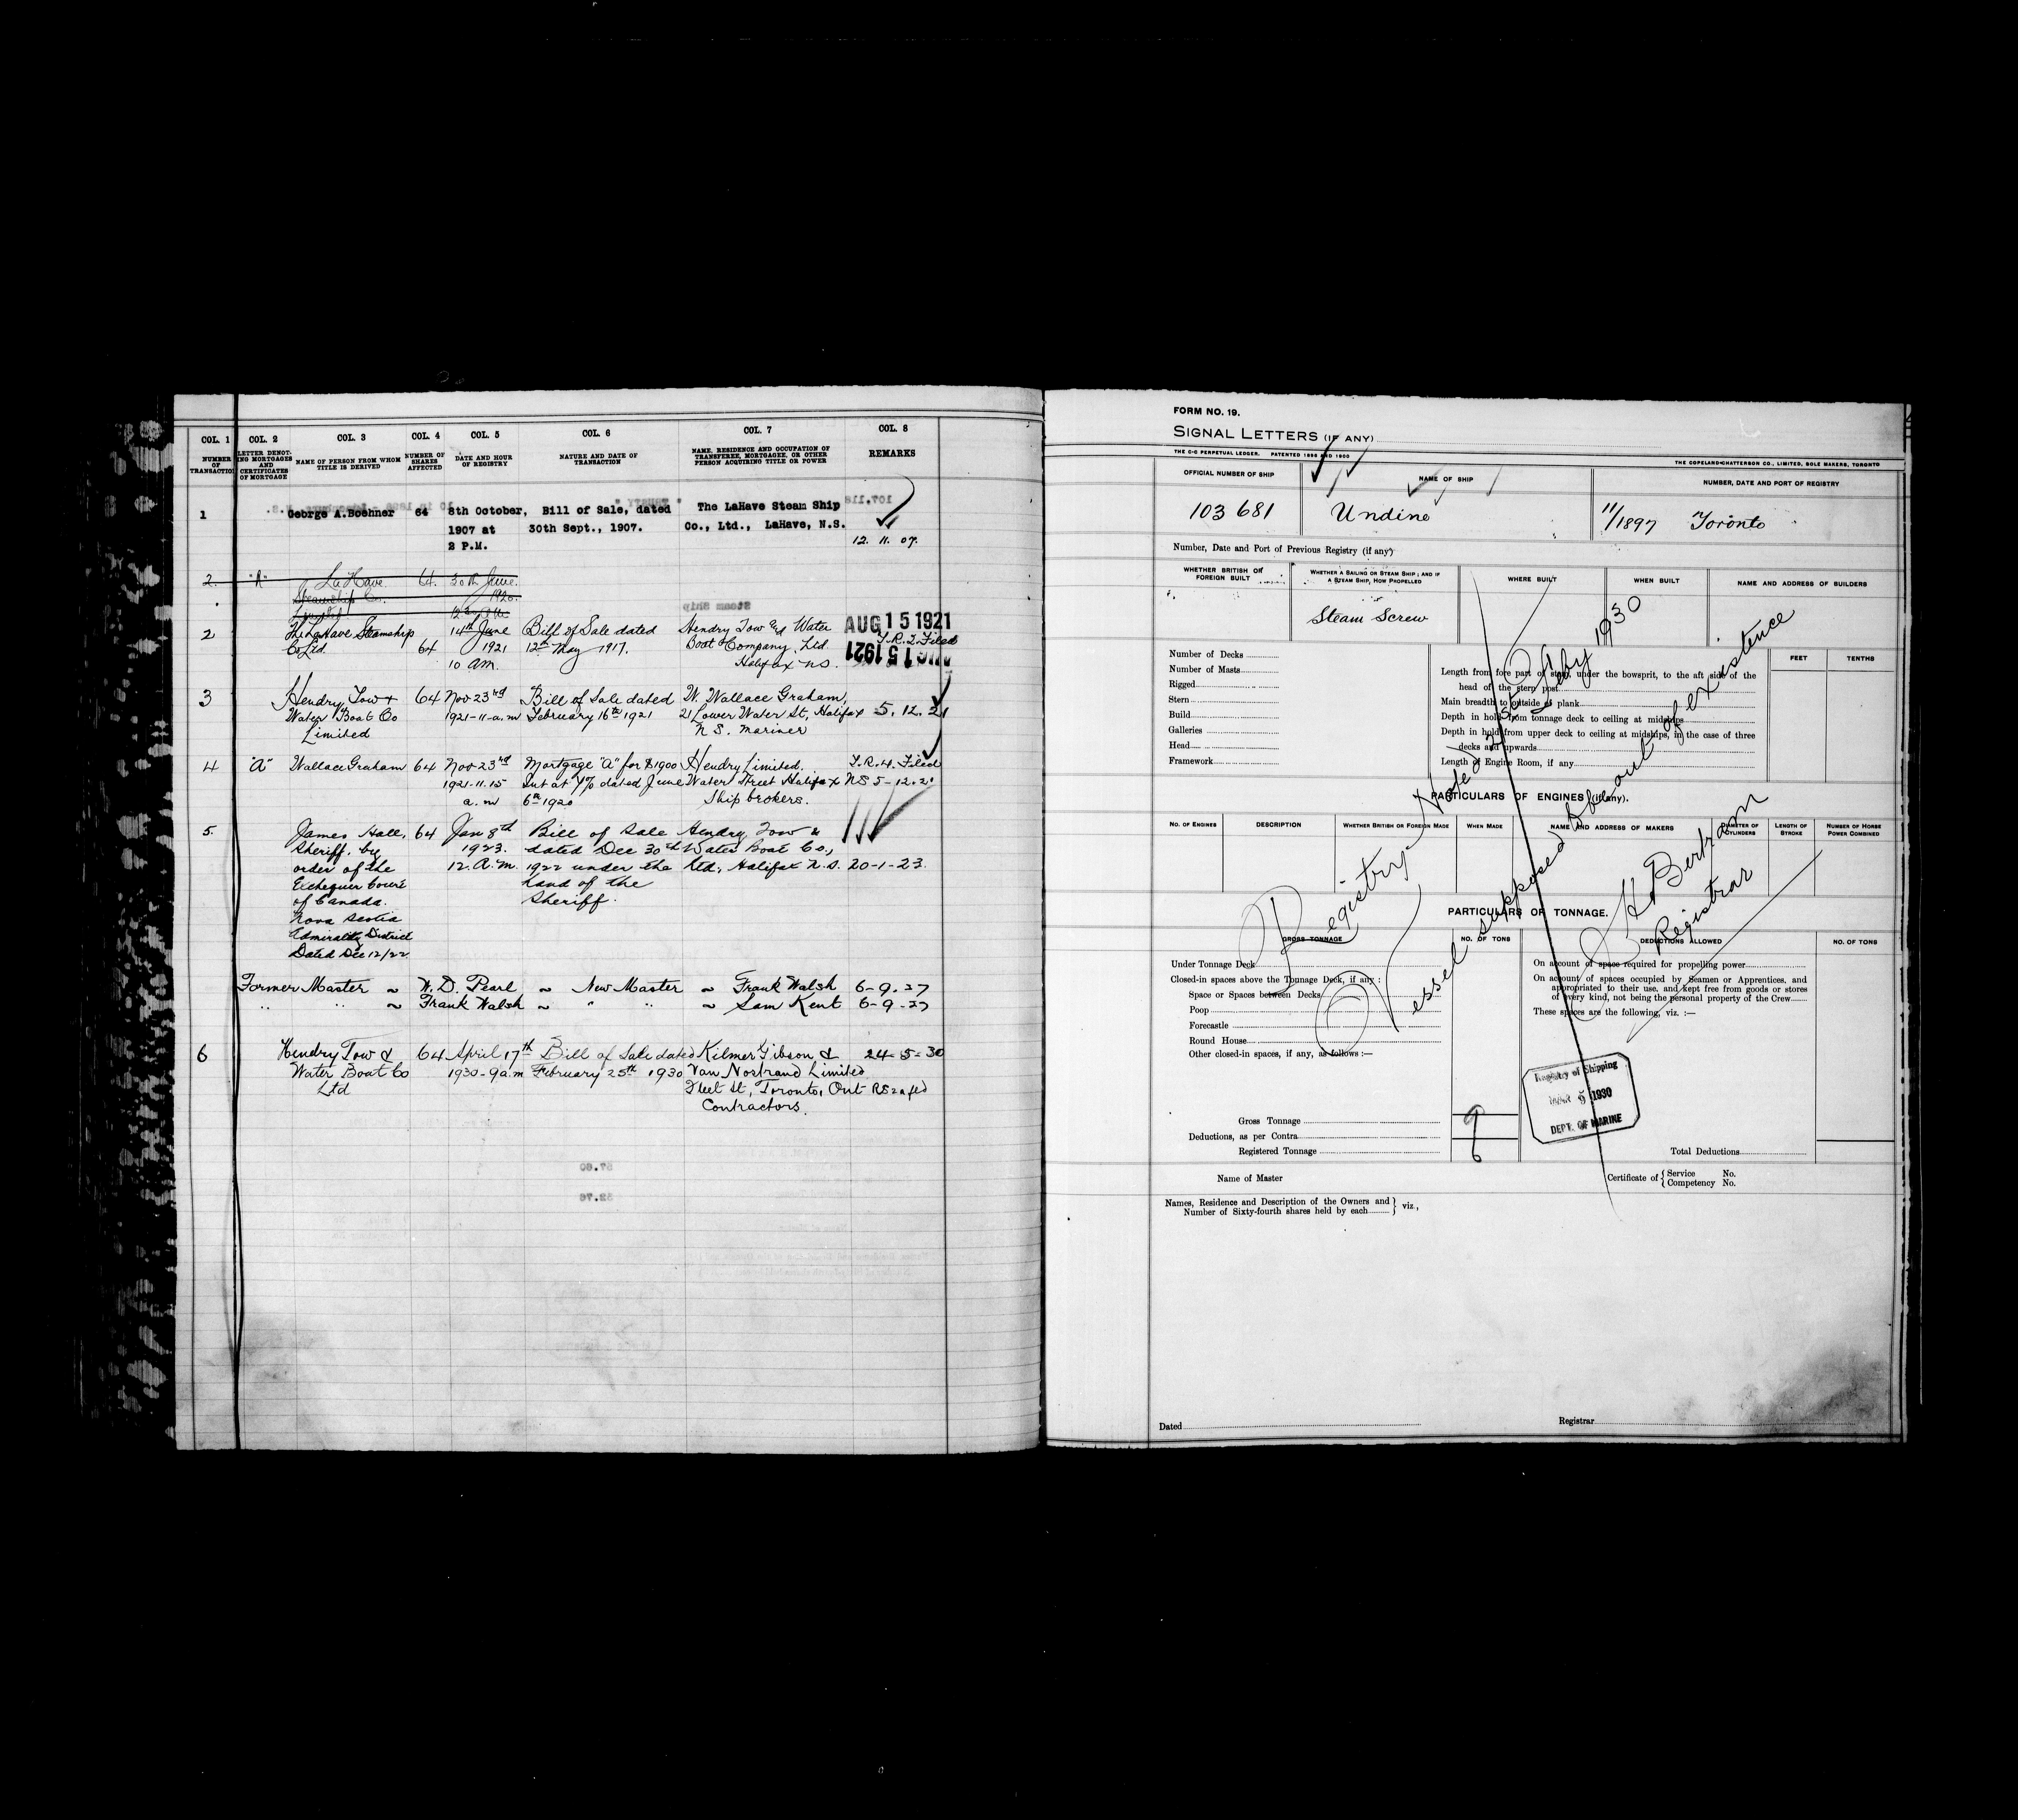 COL. 1 COL. 2 COL. 3 COL. 4 COL. 5 COL. 6 COL. 7 COL. 8
NUMBER OF TRANSACTION
LETTER DENOTING MORTGAGES AND CERTIFICATES OF MORTGAGE
NAME OF PERSON FROM WHOM TITLE IS DERIVED
NUMBER OF SHARES AFFECTED
DATE AND HOUR OF REGISTRY
NATURE AND DATE OF TRANSACTION
NAME, RESIDENCE AND OCCUPATION OF TRANSFEREE, MORTGAGEE, OR OTHER PERSON ACQUIRING TITLE OR POWER
REMARKS
1 George A.Boehner 64 8th October, Bill of Sale, dated The LaHave Steam Ship
1907 at 30th Sept., 1907. Co., Ltd., LaHave, N.S.
2 P.M. 12. 11. 07.
2. "A" La Have 64. 30th June.
Steamship Co. 1920.
Limited
2 The LaHave Steamship 14th June Bill of Sale dated Hendry Tow and Water AUG 15 1921
Co Ltd. 64 1921 12th May 1917. Boat Company, Ltd T.R.2. Filed
10 am. Halifax N.S. AUG 15 1921
3 Hendry Tow & 64 Nov 23rd Bill of Sale dated W. Wallace Graham,
Water Boat Co 1921-11-a.m February 16th 1921 21 Lower Water St, Halifax 5. 12. 21
Limited N.S. Mariner
4 "A" Wallace Graham 64 Nov 23rd Mortgage "A" for $1900 Hendry Limited. T.R.4. Filed
1921-11.15 Int at 7% dated June Water Street Halifax NS 5-12.21
a.m 6th 1920 Ship brokers.
5. James Hall, 64 Jan 8th Bill of Sale Hendry Tow &
Sheriff. by 1923. dated Dec 30th Water Boat Co.,
order of the 12. A.M. 1922 under the Ltd., Halifax N.S. 20-1-23.
Exchequer Court hand of the
of Canada. Sheriff.
Nova Scotia
Admiralty District
Dated Dec 12/22
Former Master ~ W. D. Pearl ~ New Master ~ Frank Walsh 6-9-27
" " ~ Frank Walsh ~ " " ~ Sam Kent 6-9-27
6 Hendry Tow & 64 April 17th Bill of Sale dated Kilmer Gibson & 24-5-30
Water Boat Co 1930-9a.m February 25th 1930 Van Nostrand Limited
Ltd Fleet St, Toronto, Ont
Contractors.
FORM NO. 19.
SIGNAL LETTERS (IF ANY)
THE C-C PERPETUAL LEDGER. PATENTED 1896 AND 1900 THE COPELAND-CHATTERSON CO., LIMITED, SOLE MAKERS, TORONTO
OFFICIAL NUMBER OF SHIP NAME OF SHIP NUMBER, DATE AND PORT OF REGISTRY
103681 Undine 11/1897 Toronto
Number, Date and Port of Previous Registry (if any)
WHETHER BRITISH OR FOREIGN BUILT
WHETHER A SAILING OR STEAM SHIP; AND IF A STEAM SHIP, HOW PROPELLED
WHERE BUILT WHEN BUILT NAME AND ADDRESS OF BUILDERS
Steam Screw
Number of Decks
Number of Masts
Rigged
Stern
Build
Galleries
Head
Framework
FEET TENTHS
Length from fore part of stem, under the bowsprit, to the aft side of the
head of the stern post
Main breadth to outside of plank
Depth in hold from tonnage deck to ceiling at midships
Depth in hold from upper deck to ceiling at midships, in the case of three
decks and upwards
Length of Engine Room, if any
PARTICULARS OF ENGINES (if any).
NO. OF ENGINES DESCRIPTION WHETHER BRITISH OR FOREIGN MADE WHEN MADE NAME AND ADDRESS OF MAKERS DIAMETER OF CYLINDERS LENGTH OF STROKE NUMBER OF HORSE POWER COMBINED
PARTICULARS OF TONNAGE.
GROSS TONNAGE NO. OF TONS DEDUCTIONS ALLOWED NO. OF TONS
Under Tonnage Deck
Closed-in spaces above the Tonnage Deck, if any :
Space or Spaces between Decks
Poop
Forecastle
Round House
Other closed-in spaces, if any, as follows :—
On account of space required for propelling power
On account of spaces occupied by Seamen or Apprentices, and
appropriated to their use, and kept free from goods or stores
of every kind, not being the personal property of the Crew
These spaces are the following, viz. :—
Registry Noted 21st Feby 1930
Vessel supposed to be out of existence
H. Bertram
Registrar
Registry of Shipping
MAR 5 1930
DEPT. OF MARINE
Gross Tonnage 9
Deductions, as per Contra
Registered Tonnage 6
Total Deductions
Name of Master
Certificate of { Service No.
Competency No.
Names, Residence and Description of the Owners and
Number of Sixty-fourth shares held by each } viz.,
Dated Registrar